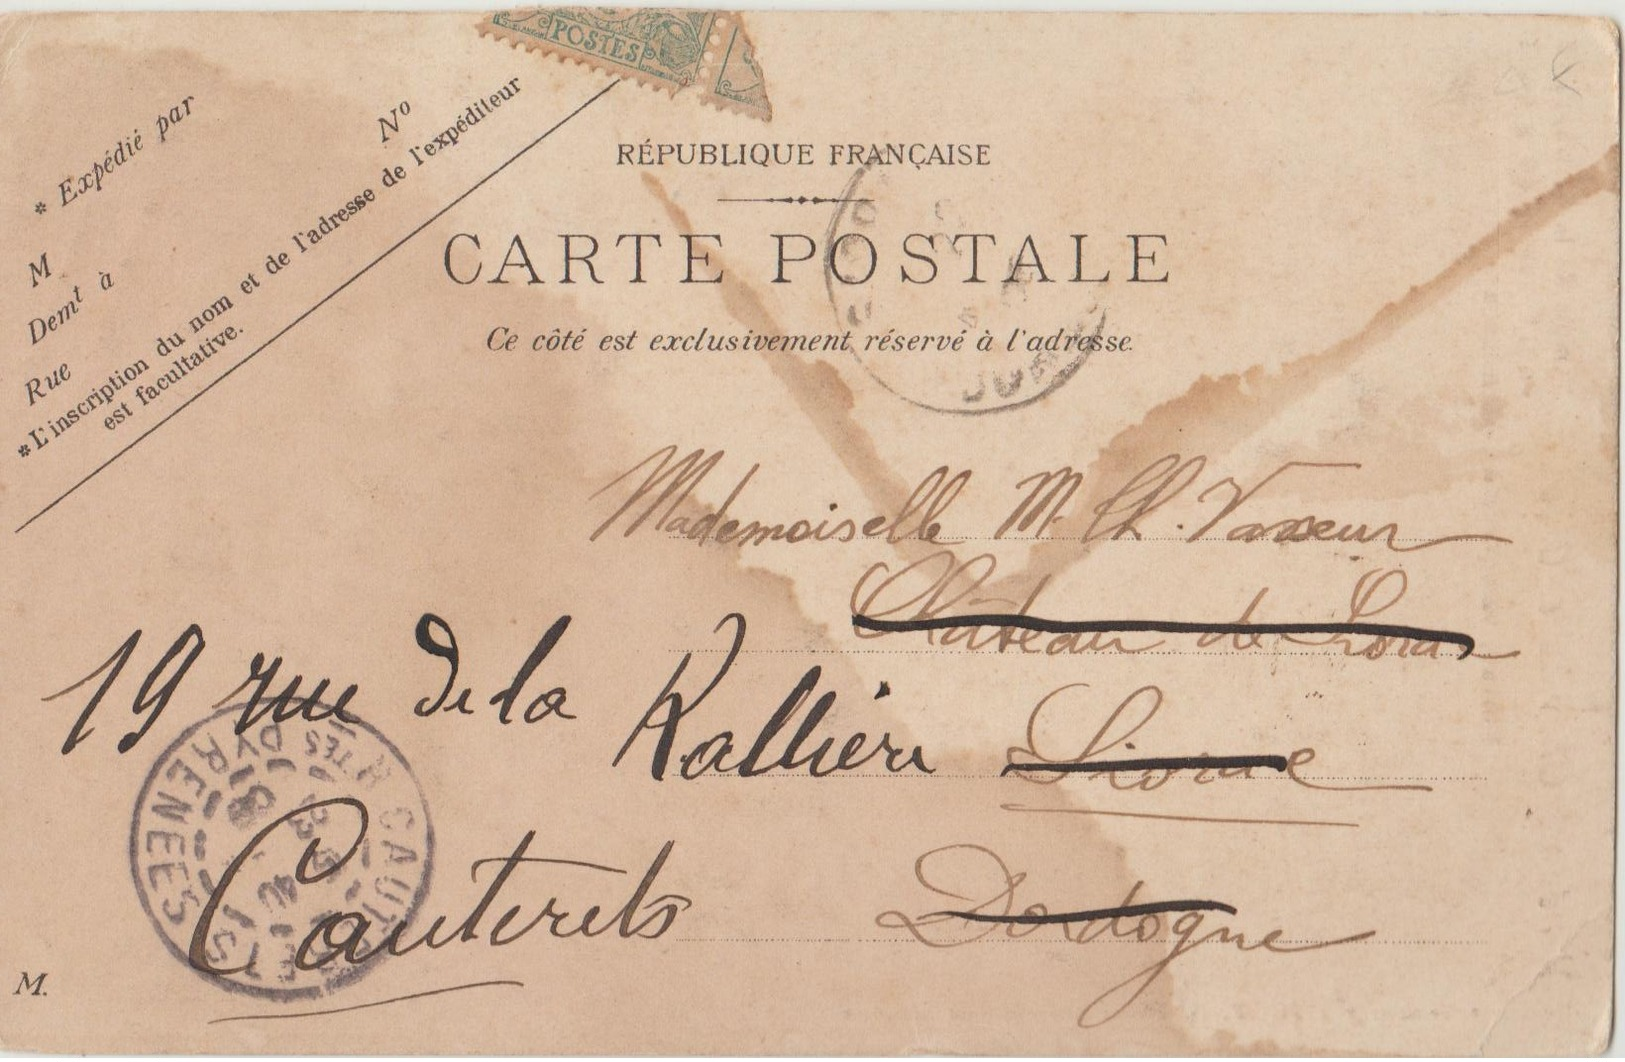 POSTES
* Expédié par
M
Nº
Demt à
Rue
*L'inscription du nom et de l'adresse de l'expéditeur
est facultative.
RÉPUBLIQUE FRANÇAISE
CARTE POSTALE
Ce côté est exclusivement réservé à l'adresse.
Mademoiselle M. Ch. Vasseur
Château de
19 rue de la Rallièr
Siorac
Cauterets
Dordogne
CAUTERETS
HTES PYRENEES
M.